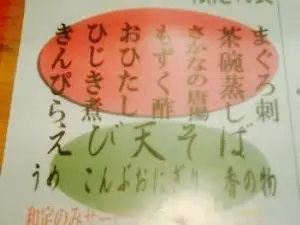 まぐろ刺
茶碗蒸し
さかなの唐揚
もずく酢
おひたし
ひじき煮
きんぴら
えび天そば
うめ こんぶおにぎり 香の物
和定のみサー